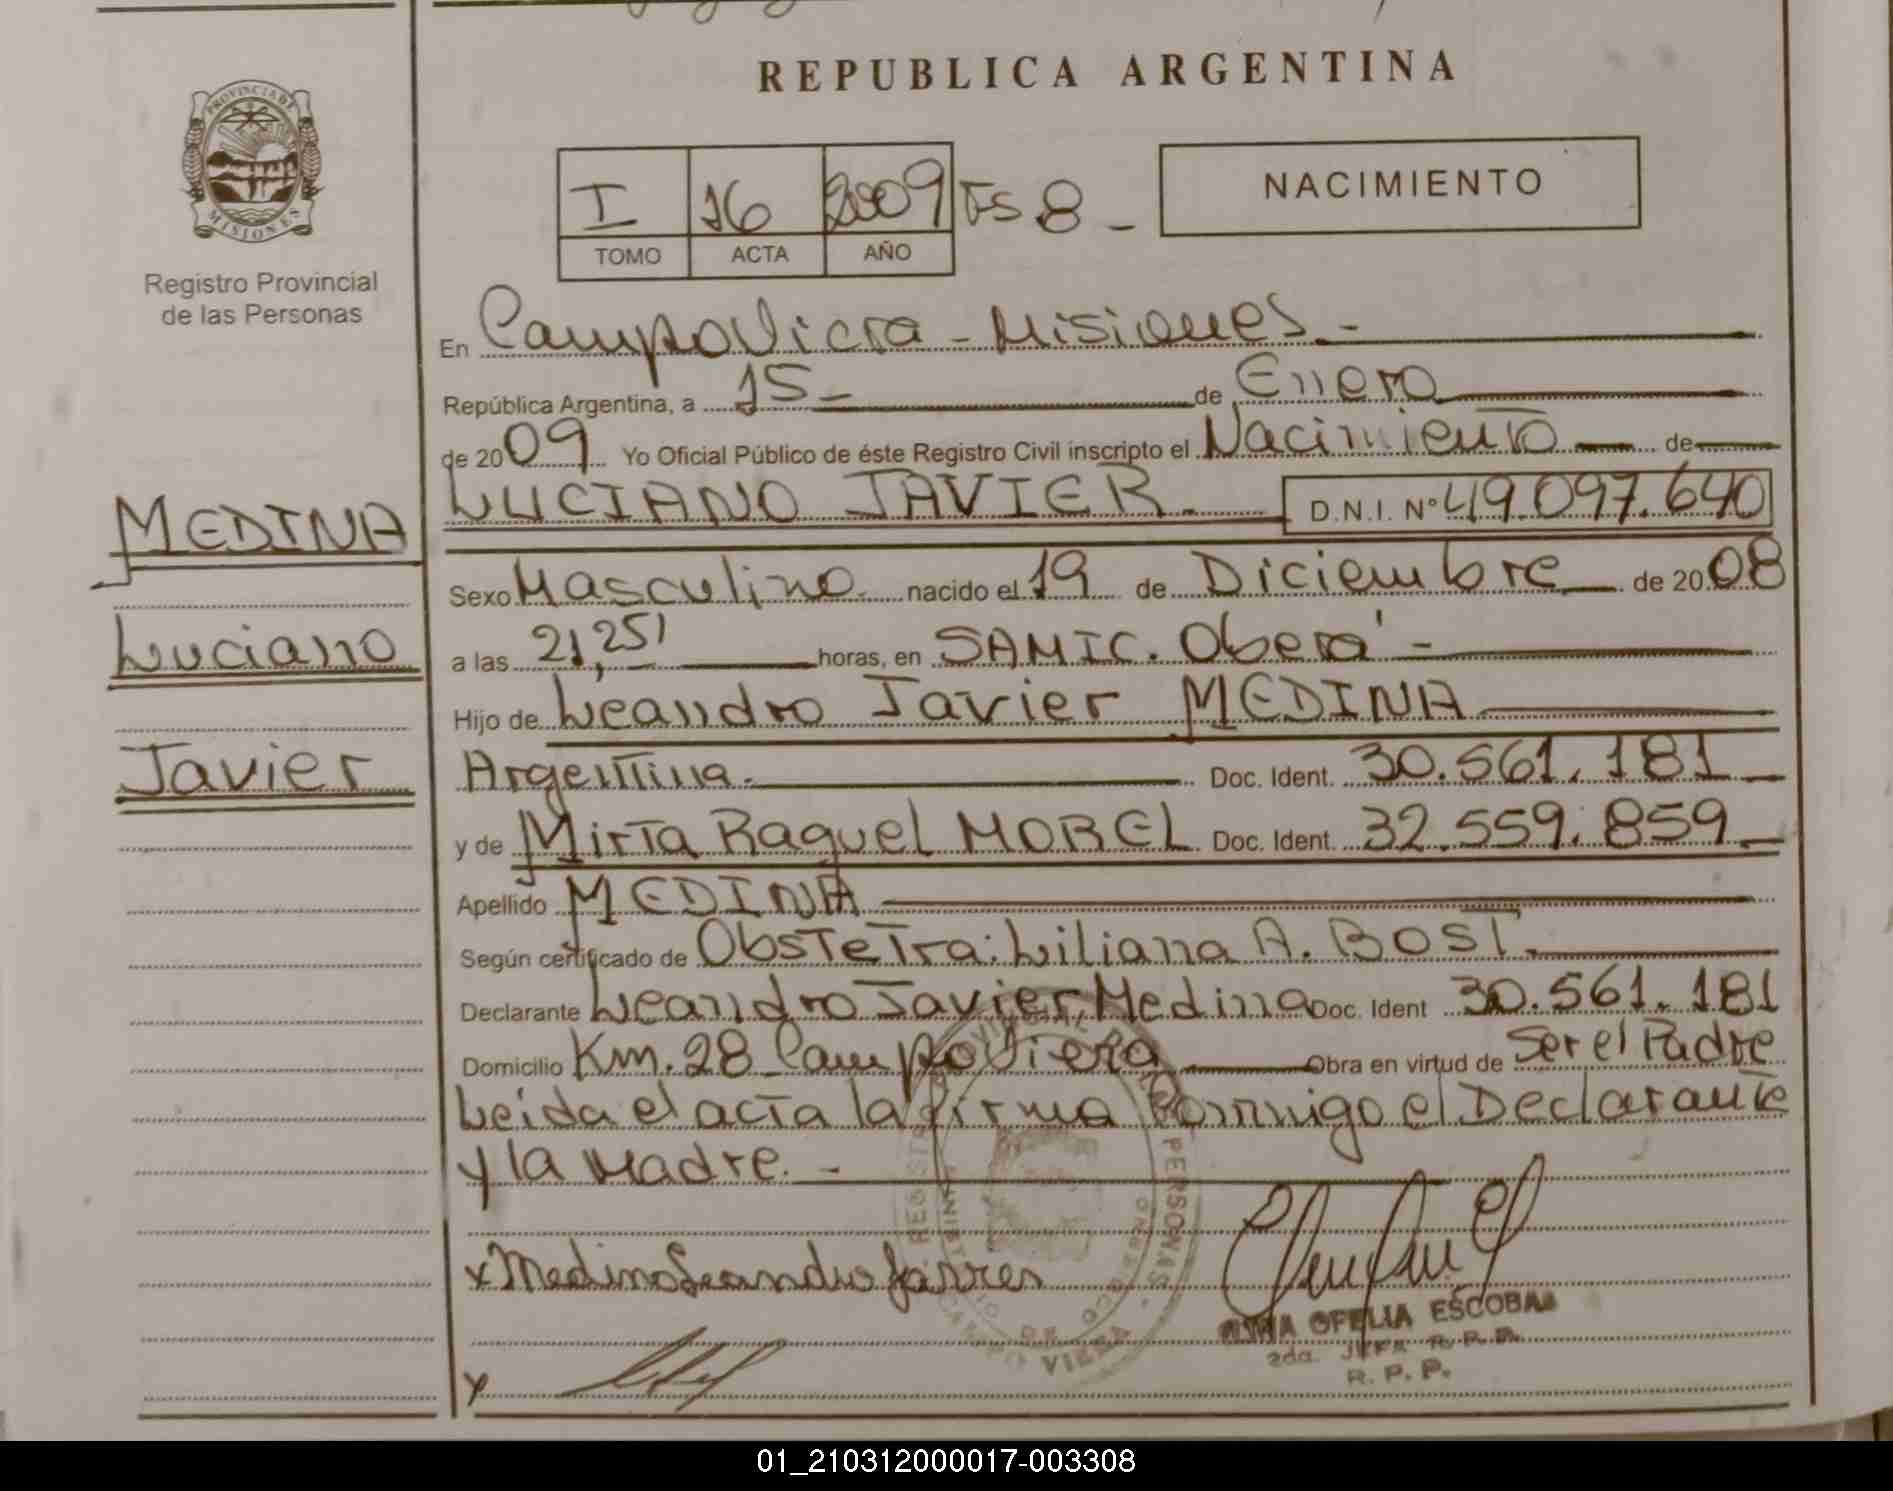 REPUBLICA ARGENTINA
PROVINCIA DE MISIONES
Registro Provincial
de las Personas
I 16 2009 Fs 8 -
TOMO ACTA AÑO
NACIMIENTO
En Campo Viera - Misiones -
República Argentina, a 15 - de Enero
de 2009 Yo Oficial Público de éste Registro Civil inscripto el Nacimiento de
LUCIANO JAVIER. D.N.I. Nº 49.097.640
MEDINA
Luciano
Javier
Sexo Masculino nacido el 19 de Diciembre de 2008
a las 21,25' horas, en SAMIC. Oberá -
Hijo de Leandro Javier MEDINA
Argentina. Doc. Ident. 30.561.181
y de Mirta Raquel MOREL Doc. Ident. 32.559.859
Apellido MEDINA
Según certificado de Obstetra: Liliana A. BOST.
Declarante Leandro Javier Medina Doc. Ident 30.561.181
Domicilio Km. 28 Campo Viera Obra en virtud de Ser el Padre
Leida el acta la firma Conmigo el Declarante
y la Madre. -
x Medina Leandro Javier
OFELIA ESCOBAR
2da. JEFA R.P.P.
R.P.P.
x
REGISTRO PROVINCIAL DE LAS PERSONAS - CAMPO VIERA
MINISTERIO DE GOBIERNO
01_210312000017-003308